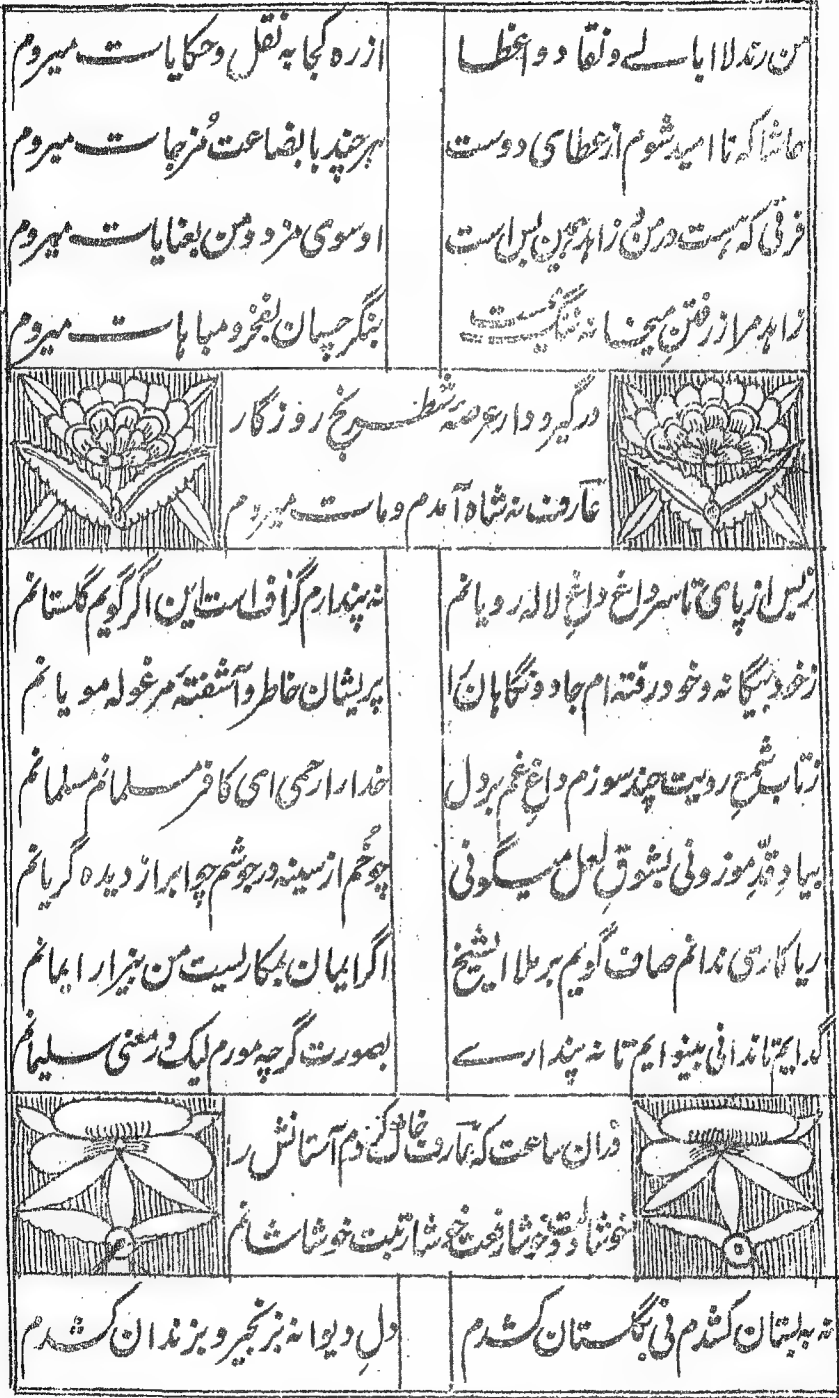 من رند لا ابالی و نقاد و اعظا ازره کجا به نقل و حکایات میروم
حاشا که نا امید شوم از عطای دوست هر چند با بضاعت مُزجات میروم
فرقی که هست در من و زاهد همین بس است او سوی مزد و من بعنایات میروم
زاهد مرا ز رفتنِ میخانه ننگ نیست بنگر چسپان بفخر و مباهات میروم
در گیر و دار عرصهٔ شطرنج روزگار
عارف نه شاه آمدم و مات میروم
ز بس از پای تا سر داغ داغِ لاله رویانم نه پندارم گزاف است این اگر گویم گلستانم
ز خود بیگانه و خود رفته ام جادو نگاهان را پریشان خاطر و آشفتهٔ مرغوله مویانم
ز تاب شمعِ رویت چند سوزم داغِ غم بر دل خدا را رحمی ای کافر مسلمانم مسلمانم
بیادِ قدِّ موزونی بشوقِ لعل میگونی چو خُم از سینه در جوشم چو ابر از دیده گریانم
ریا کاری ندانم صاف گویم بر ملا ایشیخ اگر ایمان بمکاریست من بیزار ایمانم
گدایم تا ندانی بینوایم تا نه پندارے بصورت گرچه مورم لیک در معنی سلیمانم
دران ساعت که عارف خاک گردم آستانش را
خوشا دولت خوشا رفعت خوشا رتبت خوشا شانم
نه به بستان کشدم نی بگلستان کشدم دلِ دیوانه بزنجیر و بزندان کشدم